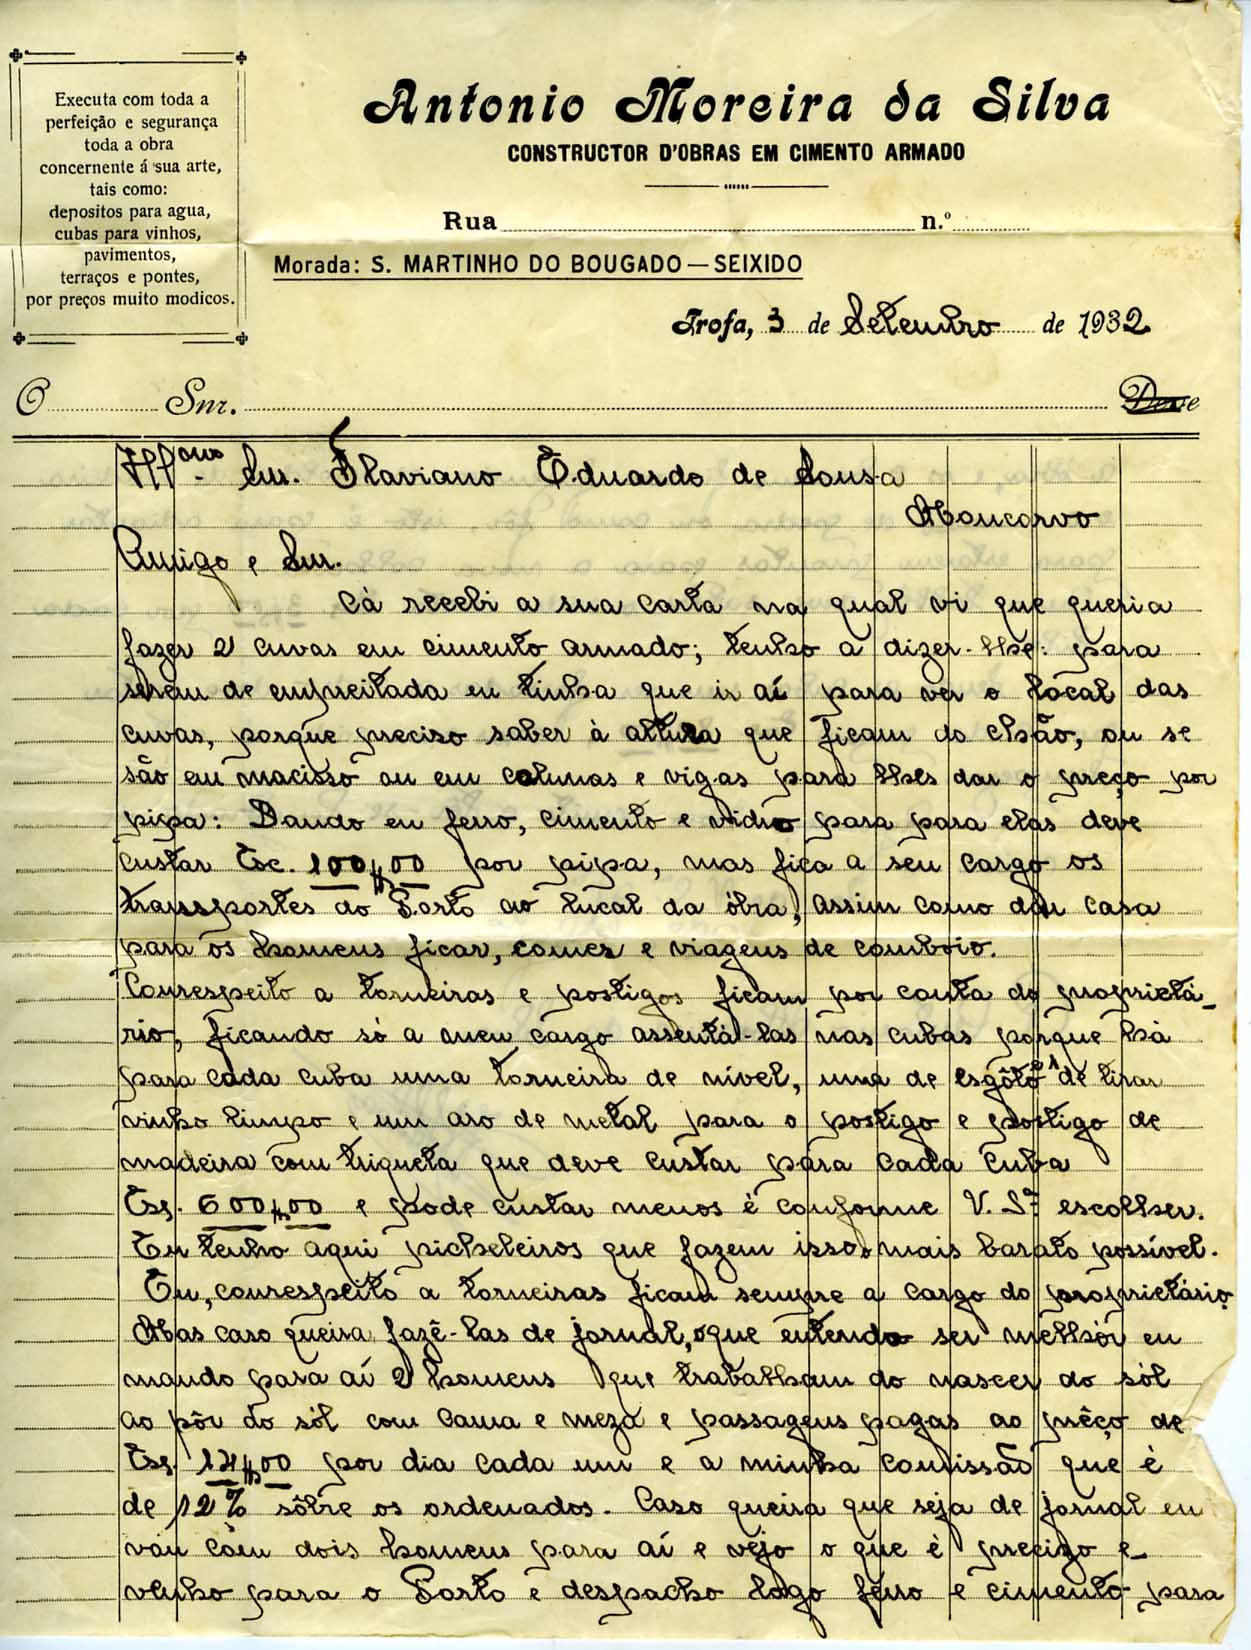 Executa com toda a
perfeição e segurança
toda a obra
concernente á sua arte,
tais como:
depositos para agua,
cubas para vinhos,
pavimentos,
terraços e pontes,
por preços muito modicos.
Antonio Moreira da Silva
CONSTRUCTOR D'OBRAS EM CIMENTO ARMADO
Rua n.º
Morada: S. MARTINHO DO BOUGADO — SEIXIDO
Trofa, 3 de Setembro de 1932
O Snr. Deve
Illmo Snr. Flaviano Eduardo de Sousa
Moncorvo
Amigo e Snr.
Cà recebi a sua carta na qual vi que queria
fazer 2 cuvas em cimento armado; tenho a dizer-lhe: para
serem de empreitada eu tinha que ir aí para ver o local das
cuvas, porque preciso saber à altura que ficam do chsão, ou se
são em macisso ou em colunas e vigas para lhes dar o preço por
pipa: Dando eu ferro, cimento e vidro para para elas deve
custar Esc. 100$00 por pipa, mas fica a seu cargo os
transportes do Porto ao lucal da óbra, assim como dar casa
para os homens ficar, comer e viagens de comboio.
Conrespeito a torneiras e postigos ficam por conta do proprietá-
rio, ficando só a meu cargo assentá-las nas cubas porque há
para cada cuba uma torneira de nível, uma de esgôto e 1 de tirar
vinho limpo e um aro de metal para o postigo e postigo de
madeira com triqueta que deve custar para cada cuba
Esc. 600$00 e pode custar menos é conforme V. Sª escolher.
Eu tenho aqui picheleiros que fazem isso o mais barato possível.
Eu, conrespeito a torneiras ficam sempre a cargo do proprietário
Mas caso queira fazê-las de jornal, o que entendo ser melhór eu
mando para aí 2 homens que trabalham do nascer do sól
ao pôr do sól com cama e meza e passagens pagas ao prêço de
Esc. 14$00 por dia cada um e a minha comissão que é
de 12% sôbre os ordenados. Caso queira que seja de jornal eu
vou com dois homens para aí e vejo o que é precizo e
venho para o Porto e despacho logo ferro e cimento para